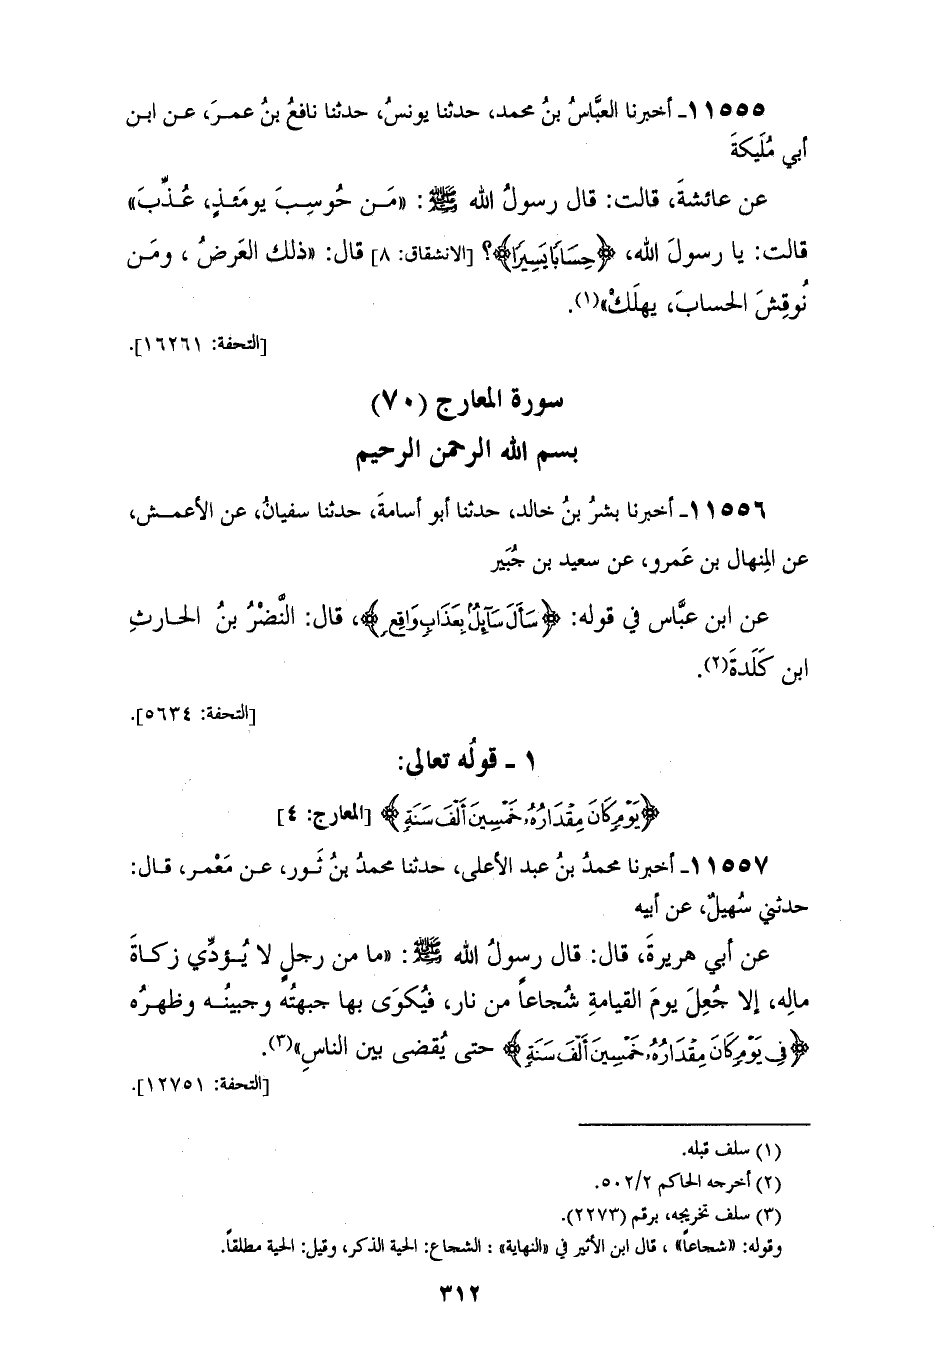 ١١٥٥٥ـ أخبرنا العبَّاسُ بنُ محمد، حدثنا يونسُ، حدثنا نافعُ بنُ عمـرَ، عـن ابـن
أبي مُلَيكةَ
عن عائشةَ، قالت: قال رسولُ الله ﷺ: «مَـن حُوسِـبَ يومَئـذٍ، عُـذِّبَ»
قالت: يا رسولَ الله، ﴿حِسَابًا يَسِيرًا﴾؟ [الانشقاق: ٨] قال: «ذلك العَرضُ، ومَـن
نُوقِشَ الحسابَ، يهلَكْ»(١).
[التحفة: ١٦٢٦١].
سورة المعارج (٧٠)
بسم الله الرحمن الرحيم
١١٥٥٦ـ أخبرنا بشرُ بنُ خالد، حدثنا أبو أسامةَ، حدثنا سفيانُ، عن الأعمـش،
عن المِنهال بن عَمرو، عن سعيد بن جُبَير
عن ابن عبَّاس في قوله: ﴿سَأَلَ سَآئِلٌۢ بِعَذَابٍ وَاقِعٍ﴾، قال: النَّضْرُ بنُ الحـارثِ
ابن كَلَدةَ(٢).
[التحفة: ٥٦٣٤].
١ ـ قولُه تعالى:
﴿يَوْمٍ كَانَ مِقْدَارُهُۥ خَمْسِينَ أَلْفَ سَنَةٍ﴾ [المعارج: ٤]
١١٥٥٧ـ أخبرنا محمدُ بنُ عبد الأعلى، حدثنا محمدُ بنُ ثَـور، عـن مَعْمر، قـال:
حدثني سُهيلٌ، عن أبيه
عن أبي هريرةَ، قال: قال رسولُ الله ﷺ: «ما من رجلٍ لا يُـؤدِّي زكـاةَ
مالِه، إلا جُعِلَ يومَ القيامةِ شُجاعاً من نار، فيُكوَى بها جبهتُه وجبينُـه وظهـرُه
﴿فِى يَوْمٍ كَانَ مِقْدَارُهُۥ خَمْسِينَ أَلْفَ سَنَةٍ﴾ حتى يُقضى بين الناسِ»(٣).
[التحفة: ١٢٧٥١].
(١) سلف قبله.
(٢) أخرجه الحاكم ٥٠٢/٢.
(٣) سلف تخريجه، برقم (٢٢٧٣).
وقوله: «شجاعاً»، قال ابن الأثير في «النهاية»: الشجاع: الحية الذكر، وقيل: الحية مطلقاً.
٣١٢